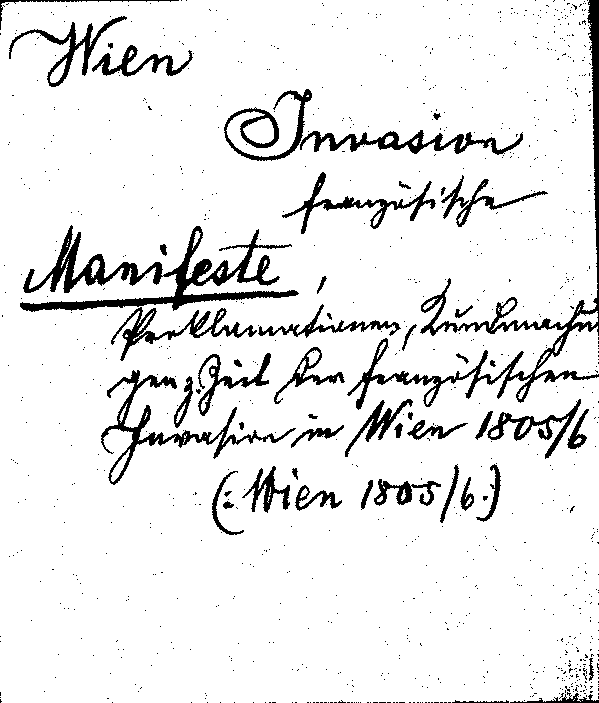 Wien
Invasion
französische
Manifeste,
Proklamationen, Kundmachun
gen z. Zeit der französischen
Invasion in Wien 1805/6
(: Wien 1805/6.)